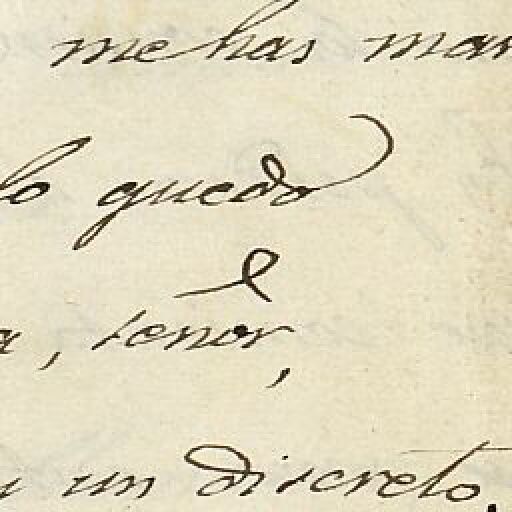 me has man
lo quedo
a, señor,
un discreto.